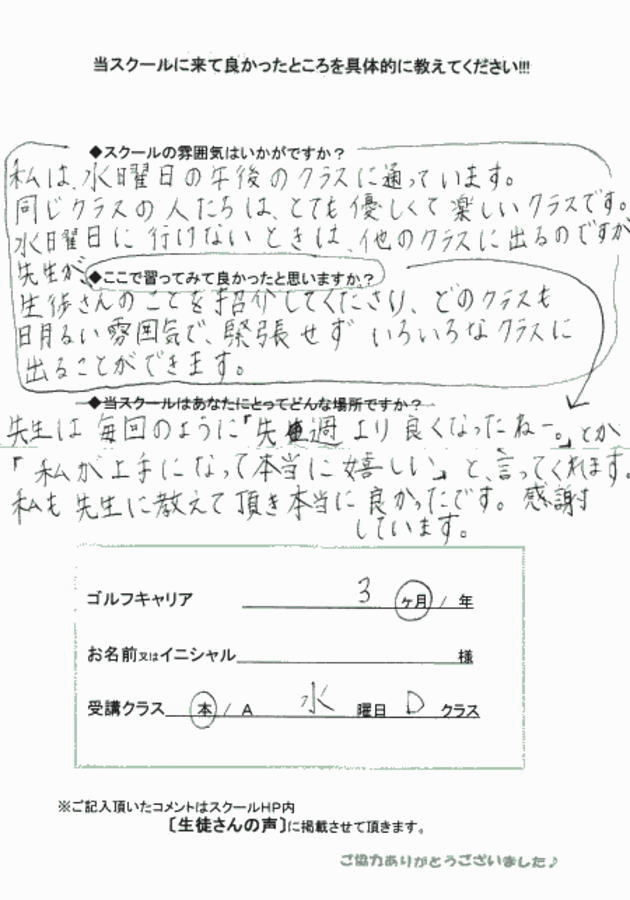 当スクールに来て良かったところを具体的に教えてください!!!
◆スクールの雰囲気はいかがですか？
私は、水曜日の午後のクラスに通っています。
同じクラスの人たちは、とても優しくて楽しいクラスです。
水曜日に行けないときは、他のクラスに出るのですが
先生が、
◆ここで習ってみて良かったと思いますか？
生徒さんのことを紹介してくださり、どのクラスも
明るい雰囲気で、緊張せずいろいろなクラスに
出ることができます。
◆当スクールはあなたにとってどんな場所ですか？
先生は毎回のように「先週より良くなったねー。」とか
「私が上手になって本当に嬉しい」と、言ってくれます。
私も先生に教えて頂き本当に良かったです。感謝
しています。
ゴルフキャリア 3 ヶ月 / 年
お名前又はイニシャル 様
受講クラス 本 / A 水 曜日 D クラス
※ご記入頂いたコメントはスクールHP内
〔生徒さんの声〕に掲載させて頂きます。
ご協力ありがとうございました♪